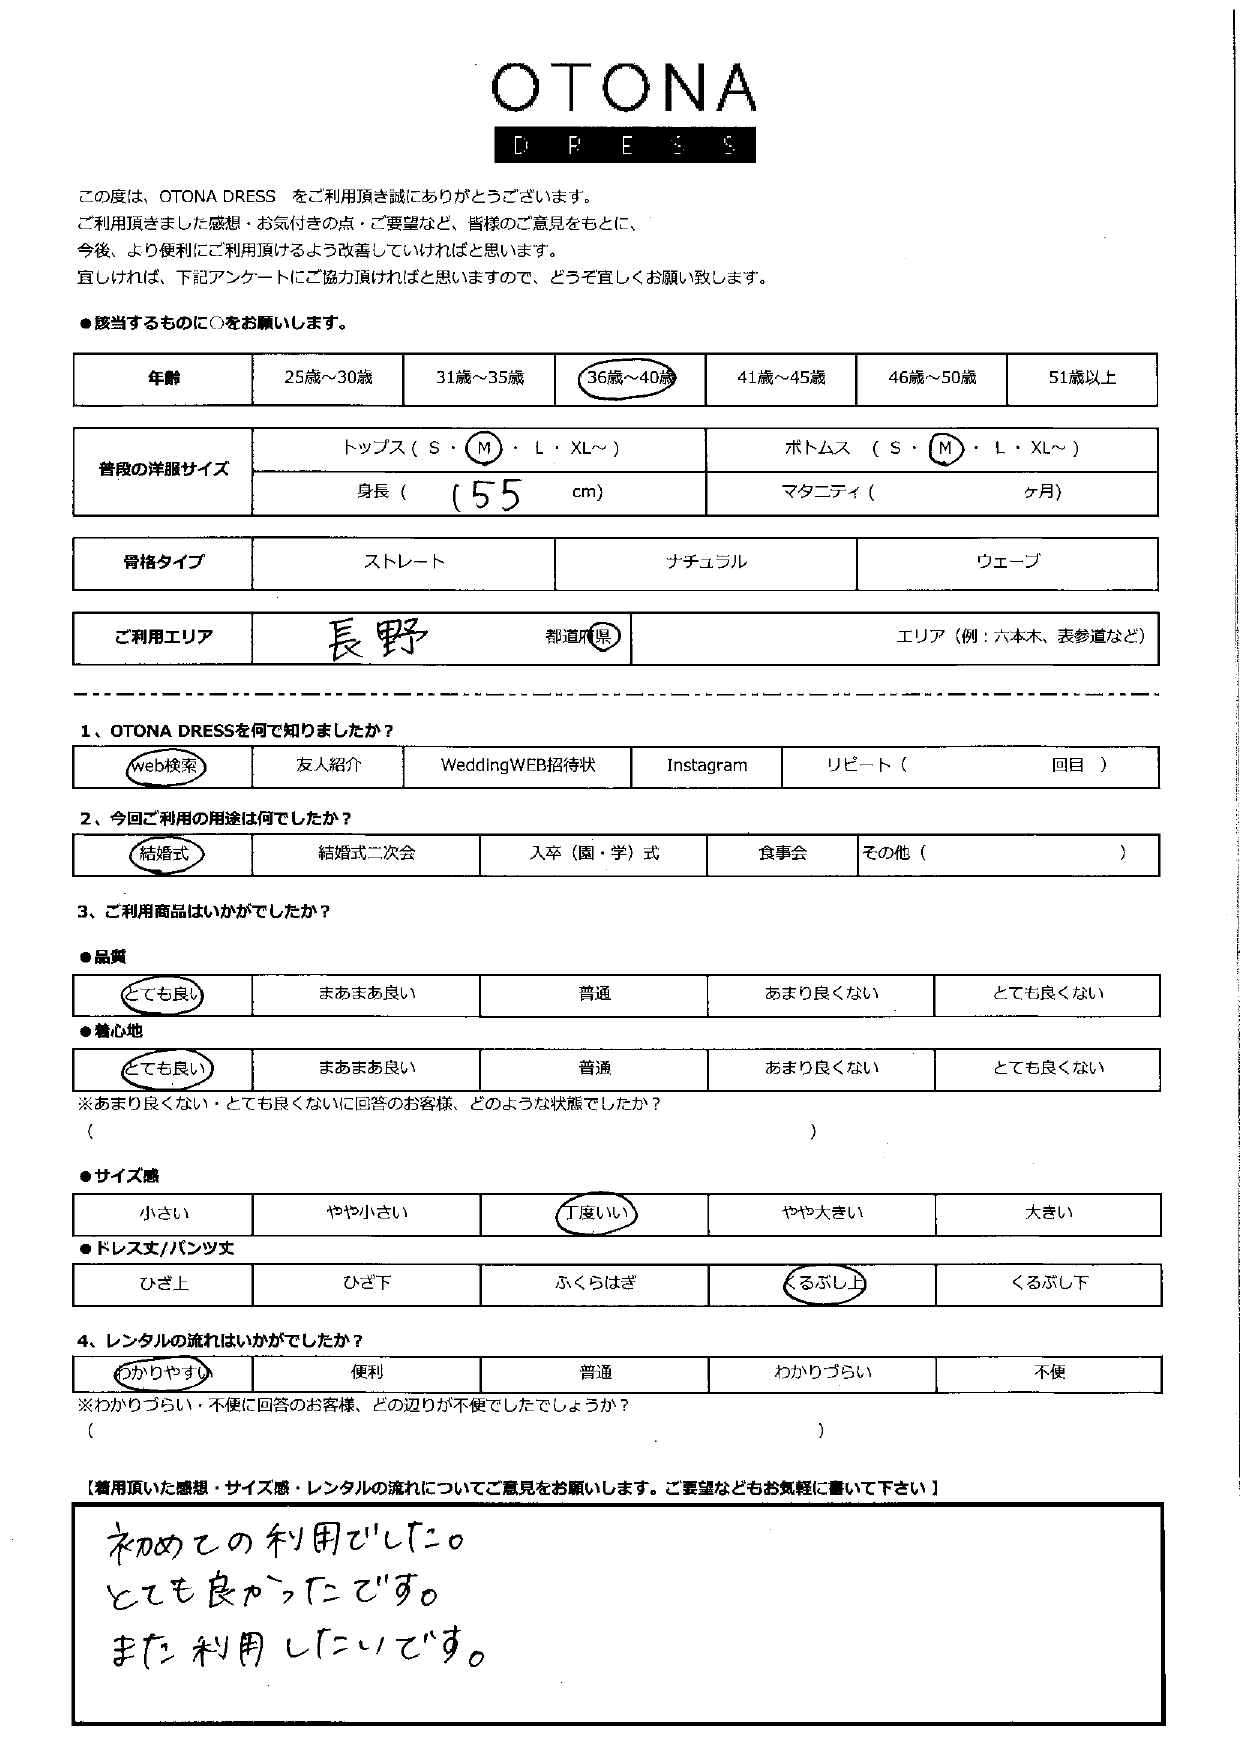 OTONA
DRESS
この度は、OTONA DRESS　をご利用頂き誠にありがとうございます。
ご利用頂きました感想・お気付きの点・ご要望など、皆様のご意見をもとに、
今後、より便利にご利用頂けるよう改善していければと思います。
宜しければ、下記アンケートにご協力頂ければと思いますので、どうぞ宜しくお願い致します。
●該当するものに○をお願いします。
年齢 25歳～30歳 31歳～35歳 36歳～40歳 41歳～45歳 46歳～50歳 51歳以上
普段の洋服サイズ トップス ( S ・ M ・ L ・ XL～ ) ボトムス ( S ・ M ・ L ・ XL～ )
身長 ( 155 cm) マタニティ ( ヶ月)
骨格タイプ ストレート ナチュラル ウェーブ
ご利用エリア 長野 都道府県 エリア（例：六本木、表参道など）
1、OTONA DRESSを何で知りましたか？
web検索 友人紹介 WeddingWEB招待状 Instagram リピート ( 回目 )
2、今回ご利用の用途は何でしたか？
結婚式 結婚式二次会 入卒（園・学）式 食事会 その他 ( )
3、ご利用商品はいかがでしたか？
●品質
とても良い まあまあ良い 普通 あまり良くない とても良くない
●着心地
とても良い まあまあ良い 普通 あまり良くない とても良くない
※あまり良くない・とても良くないに回答のお客様、どのような状態でしたか？
( )
●サイズ感
小さい やや小さい 丁度いい やや大きい 大きい
●ドレス丈/パンツ丈
ひざ上 ひざ下 ふくらはぎ くるぶし上 くるぶし下
4、レンタルの流れはいかがでしたか？
わかりやすい 便利 普通 わかりづらい 不便
※わかりづらい・不便に回答のお客様、どの辺りが不便でしたでしょうか？
( )
【着用頂いた感想・サイズ感・レンタルの流れについてご意見をお願いします。ご要望などもお気軽に書いて下さい】
初めての利用でした。
とても良かったです。
また利用したいです。